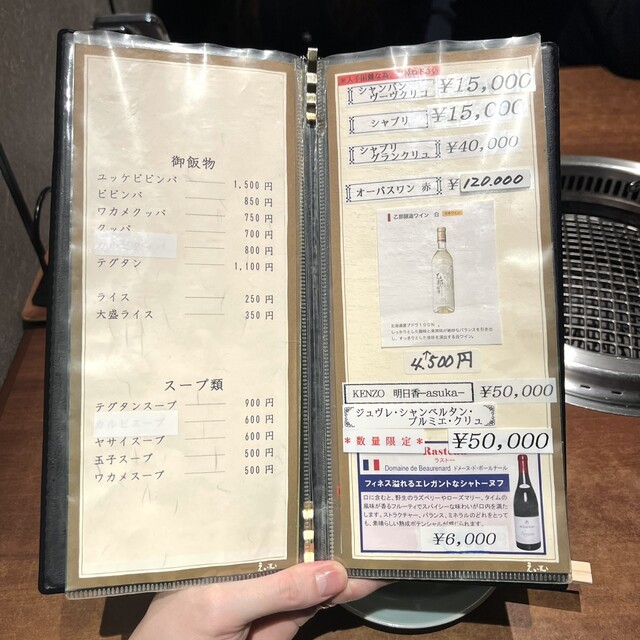 御飯物
ユッケビビンバ 1,500 円
ビビンバ 850 円
ワカメクッパ 750 円
クッパ 700 円
800 円
テグタン 1,100 円
ライス 250 円
大盛ライス 350 円
スープ類
テグタンスープ 900 円
カルビスープ 600 円
ヤサイスープ 600 円
玉子スープ 500 円
ワカメスープ 500 円
シャンパン
ヴーヴクリコ ¥15,000
シャブリ ¥15,000
シャブリ
グランクリュ ¥40,000
オーパスワン 赤 ¥120.000
乙部醸造ワイン 白
4,500円
KENZO 明日香-asuka- ¥50,000
ジュヴレ・シャンベルタン・
プルミエ・クリュ
*数量限定* ¥50,000
Rasteau
ラストー
Domaine de Beaurenard ドメーヌ・ド・ボールナール
フィネス溢れるエレガントなシャトーヌフ
口に含むと、野生のラズベリーやローズマリー、タイムの
風味が香るフルーティでスパイシーな味わいが口内を満た
します。ストラクチャー、バランス、ミネラルのどれをとって
も、素晴らしい熟成ポテンシャルが感じられます。
¥6,000